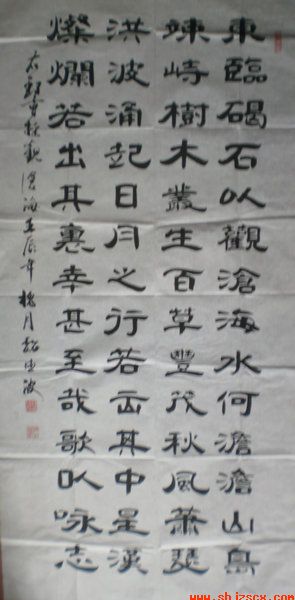 東臨碣石以觀滄海水何澹澹山島
竦峙樹木叢生百草豐茂秋風蕭瑟
洪波涌起日月之行若出其中星漢
燦爛若出其裏幸甚至哉歌以咏志
曹操觀滄海壬辰年月